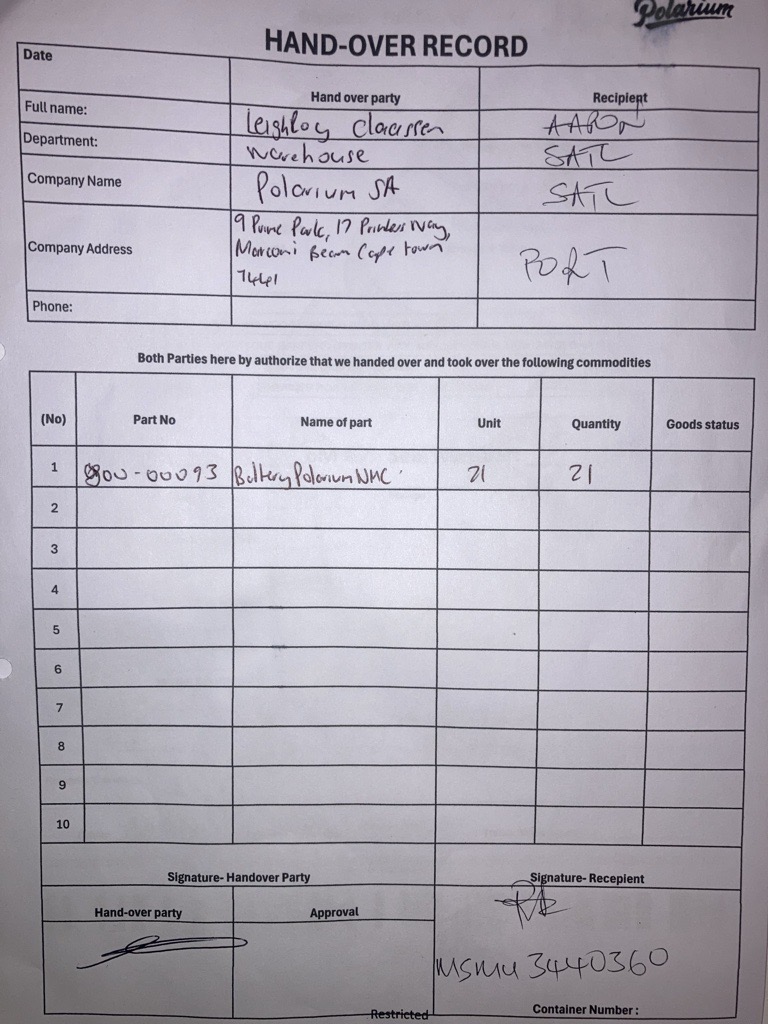 Polarium
HAND-OVER RECORD
Date
Hand over party Recipient
Full name: Leighloy Claassen AARON
Department: warehouse SATL
Company Name Polarium SA SATL
Company Address 9 Prime Park, 17 Printers Way,
Marconi Beam Cape town
7441 PORT
Phone:
Both Parties here by authorize that we handed over and took over the following commodities
(No) Part No Name of part Unit Quantity Goods status
1 -00093 Battery Polarium NMC 21 21
2
3
4
5
6
7
8
9
10
Signature- Handover Party Signature- Recepient
Hand-over party Approval
MSMU 3440360
Restricted Container Number :